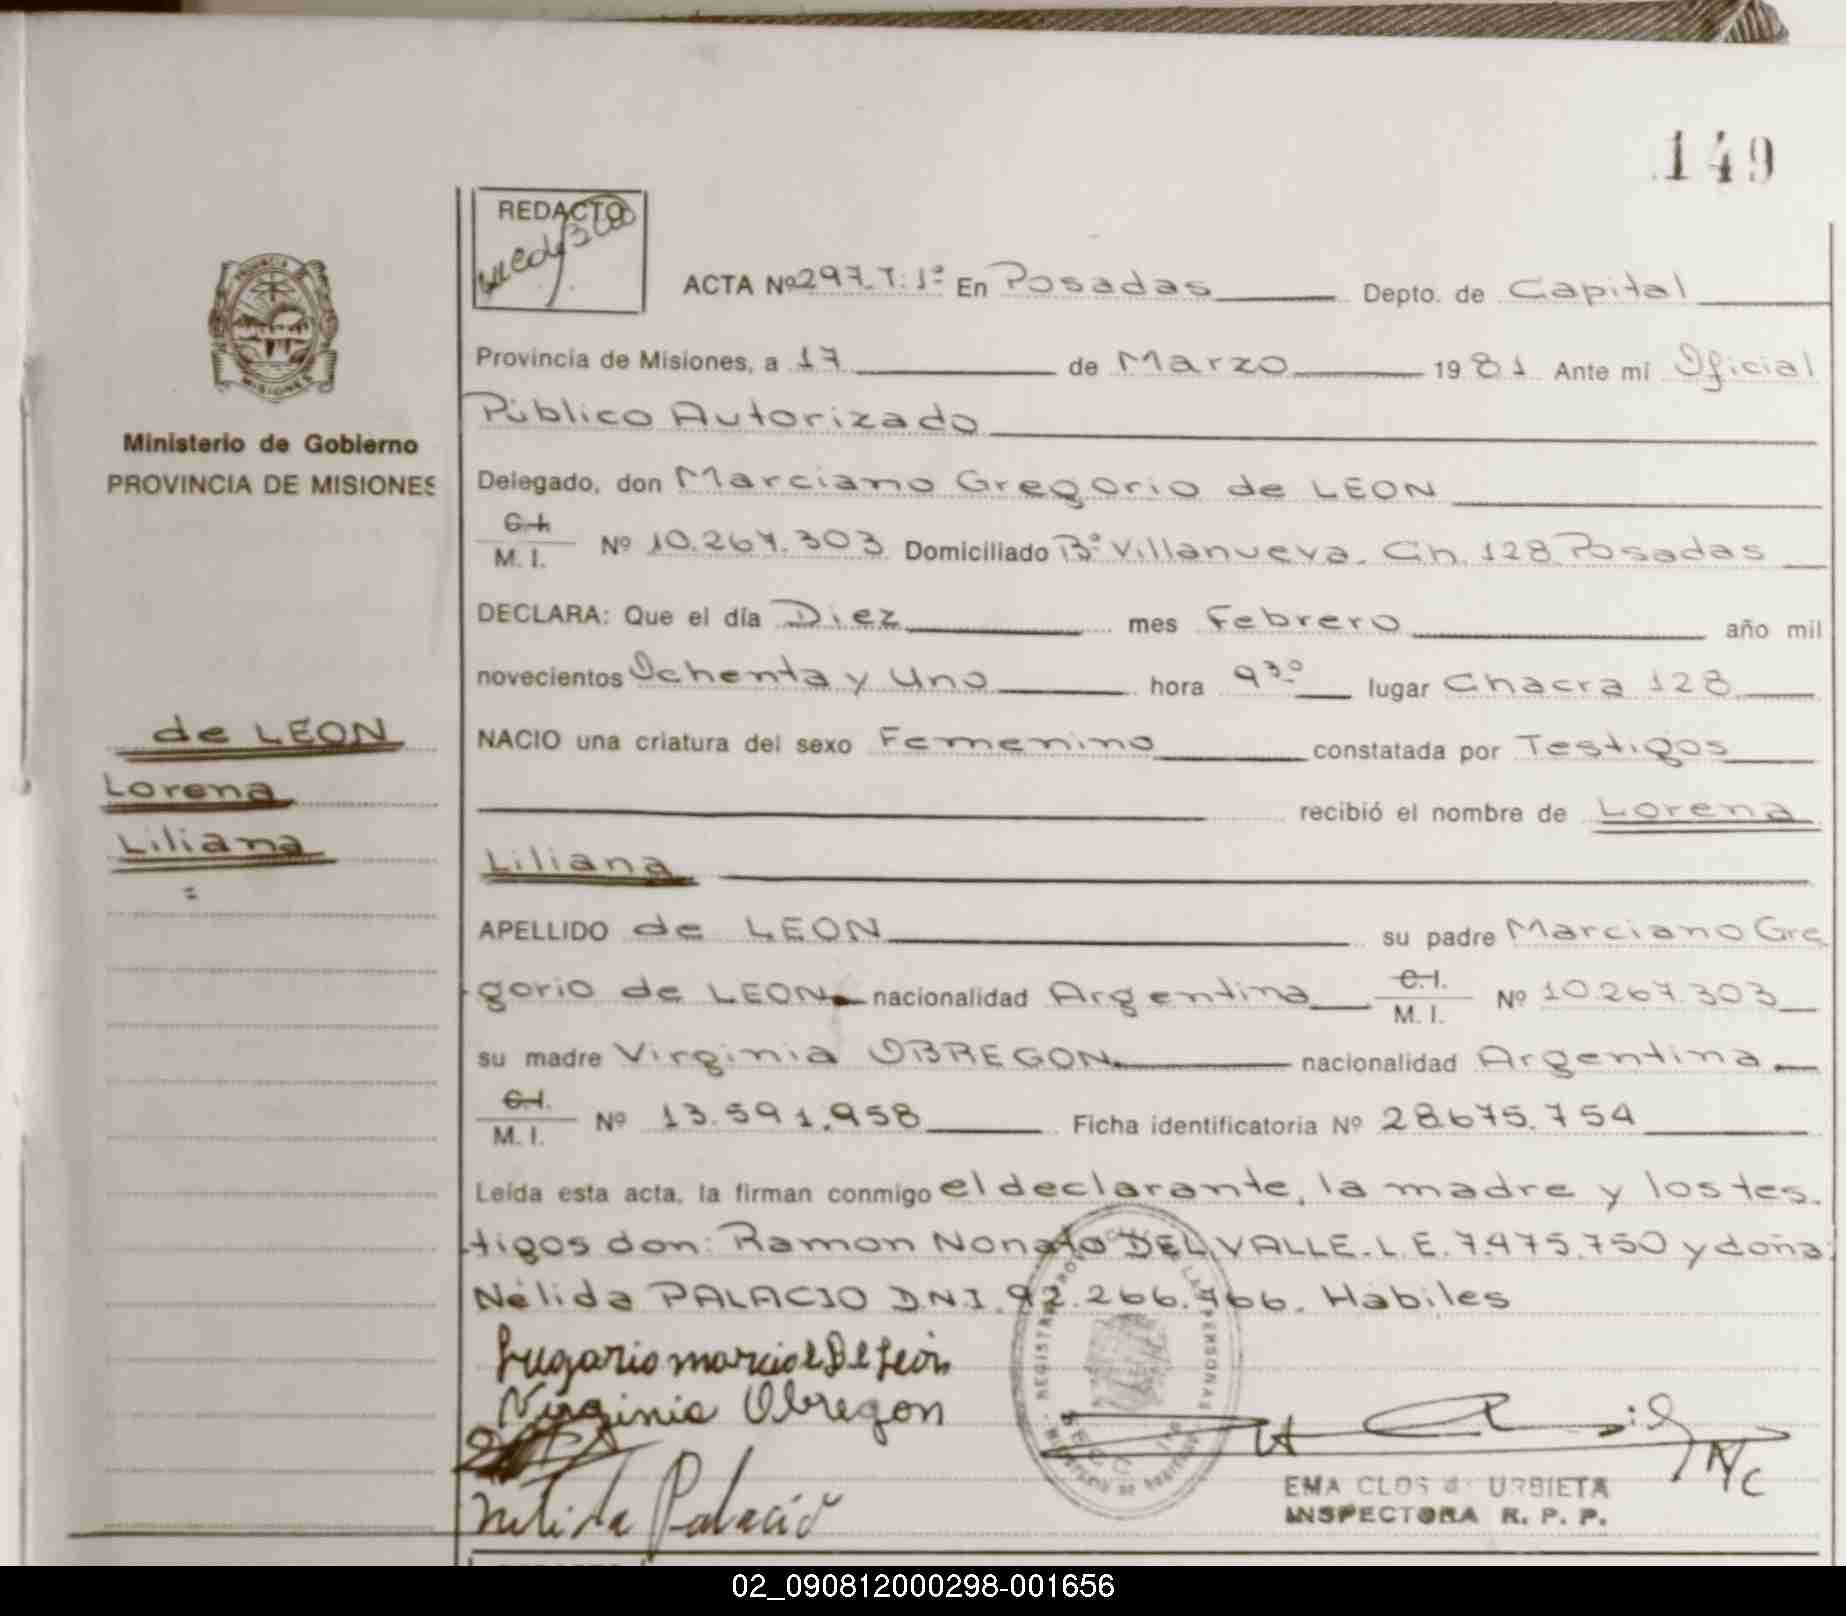 149
REDACTO
ACTA Nº 297. T: 1º En Posadas Depto. de Capital
Provincia de Misiones, a 17 de Marzo 1981 Ante mí Oficial
Público Autorizado
Ministerio de Gobierno
PROVINCIA DE MISIONES
Delegado, don Marciano Gregorio de LEON
C.I.
M. I. Nº 10.267.303 Domiciliado Bº Villanueva. Ch. 128 Posadas
DECLARA: Que el día Diez mes Febrero año mil
novecientos Ochenta y Uno hora 9 30 lugar Chacra 128
de LEON
Lorena
Liliana
=
NACIO una criatura del sexo Femenino constatada por Testigos
recibió el nombre de Lorena
Liliana
APELLIDO de LEON su padre Marciano Gre
gorio de LEON nacionalidad Argentina C.I. M. I. Nº 10.267.303
su madre Virginia OBREGON nacionalidad Argentina
C.I.
M. I. Nº 13.591.958 Ficha identificatoria Nº 28.675.754
Leída esta acta, la firman conmigo el declarante, la madre y los tes.
tigos don: Ramon Nonato DEL VALLE. L. E. 7.475.750 y doña:
Nélida PALACIO D.N.I. 92.266.766. Hábiles
De León
Virginia Obregon
Nelida Palacio
EMA CLOS de URBIETA
INSPECTORA R. P. P.
02_090812000298-001656